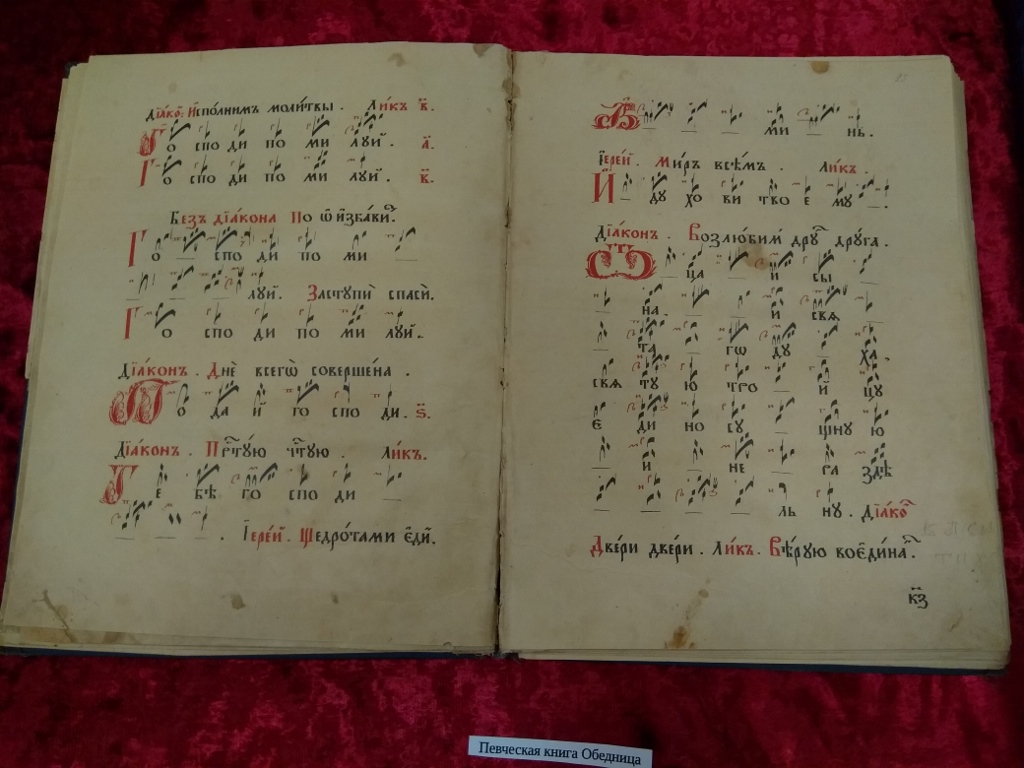 Дїа́ко: И҆спо́лнимъ моли́твы . Ли́къ в҃.
Го спо ди по ми луи҆. а҃.
Го спо ди по ми луи҆. в҃.
Безъ дїа́кона По ѿ и҆зба́ви.
Го спо ди по ми
луи҆. Заступѝ спасѝ.
Го спо ди по ми луи҆.
Дїа́конъ . Днѐ всегѡ̀ соверше́на .
По да и҆ го спо ди. ѕ҃.
Дїа́конъ . Пр҃ту́ю чⷭ҇тую . Ли́къ.
Те бѣ го спо ди
. І҆ере́й . Щедро́тами є҆ди.
25
А ми нь.
І҆ере́й . Ми́ръ всѣ́мъ . Ли́къ .
И҆ ду хо ви тво е му
Дїа́конъ . Возлю́бим дру́г дру́га .
Ѿ ца и сы
на . и свѧ
та гѡ ду ха .
свѧ ту ю тро и цу
Є ди но су щну ю
и не ра здѣ
ль ну . Дїа́ко
Две́ри две́ри . Ли́къ . Вѣ́рую воє҆ди́на
к҃з
Певческая книга Обедница